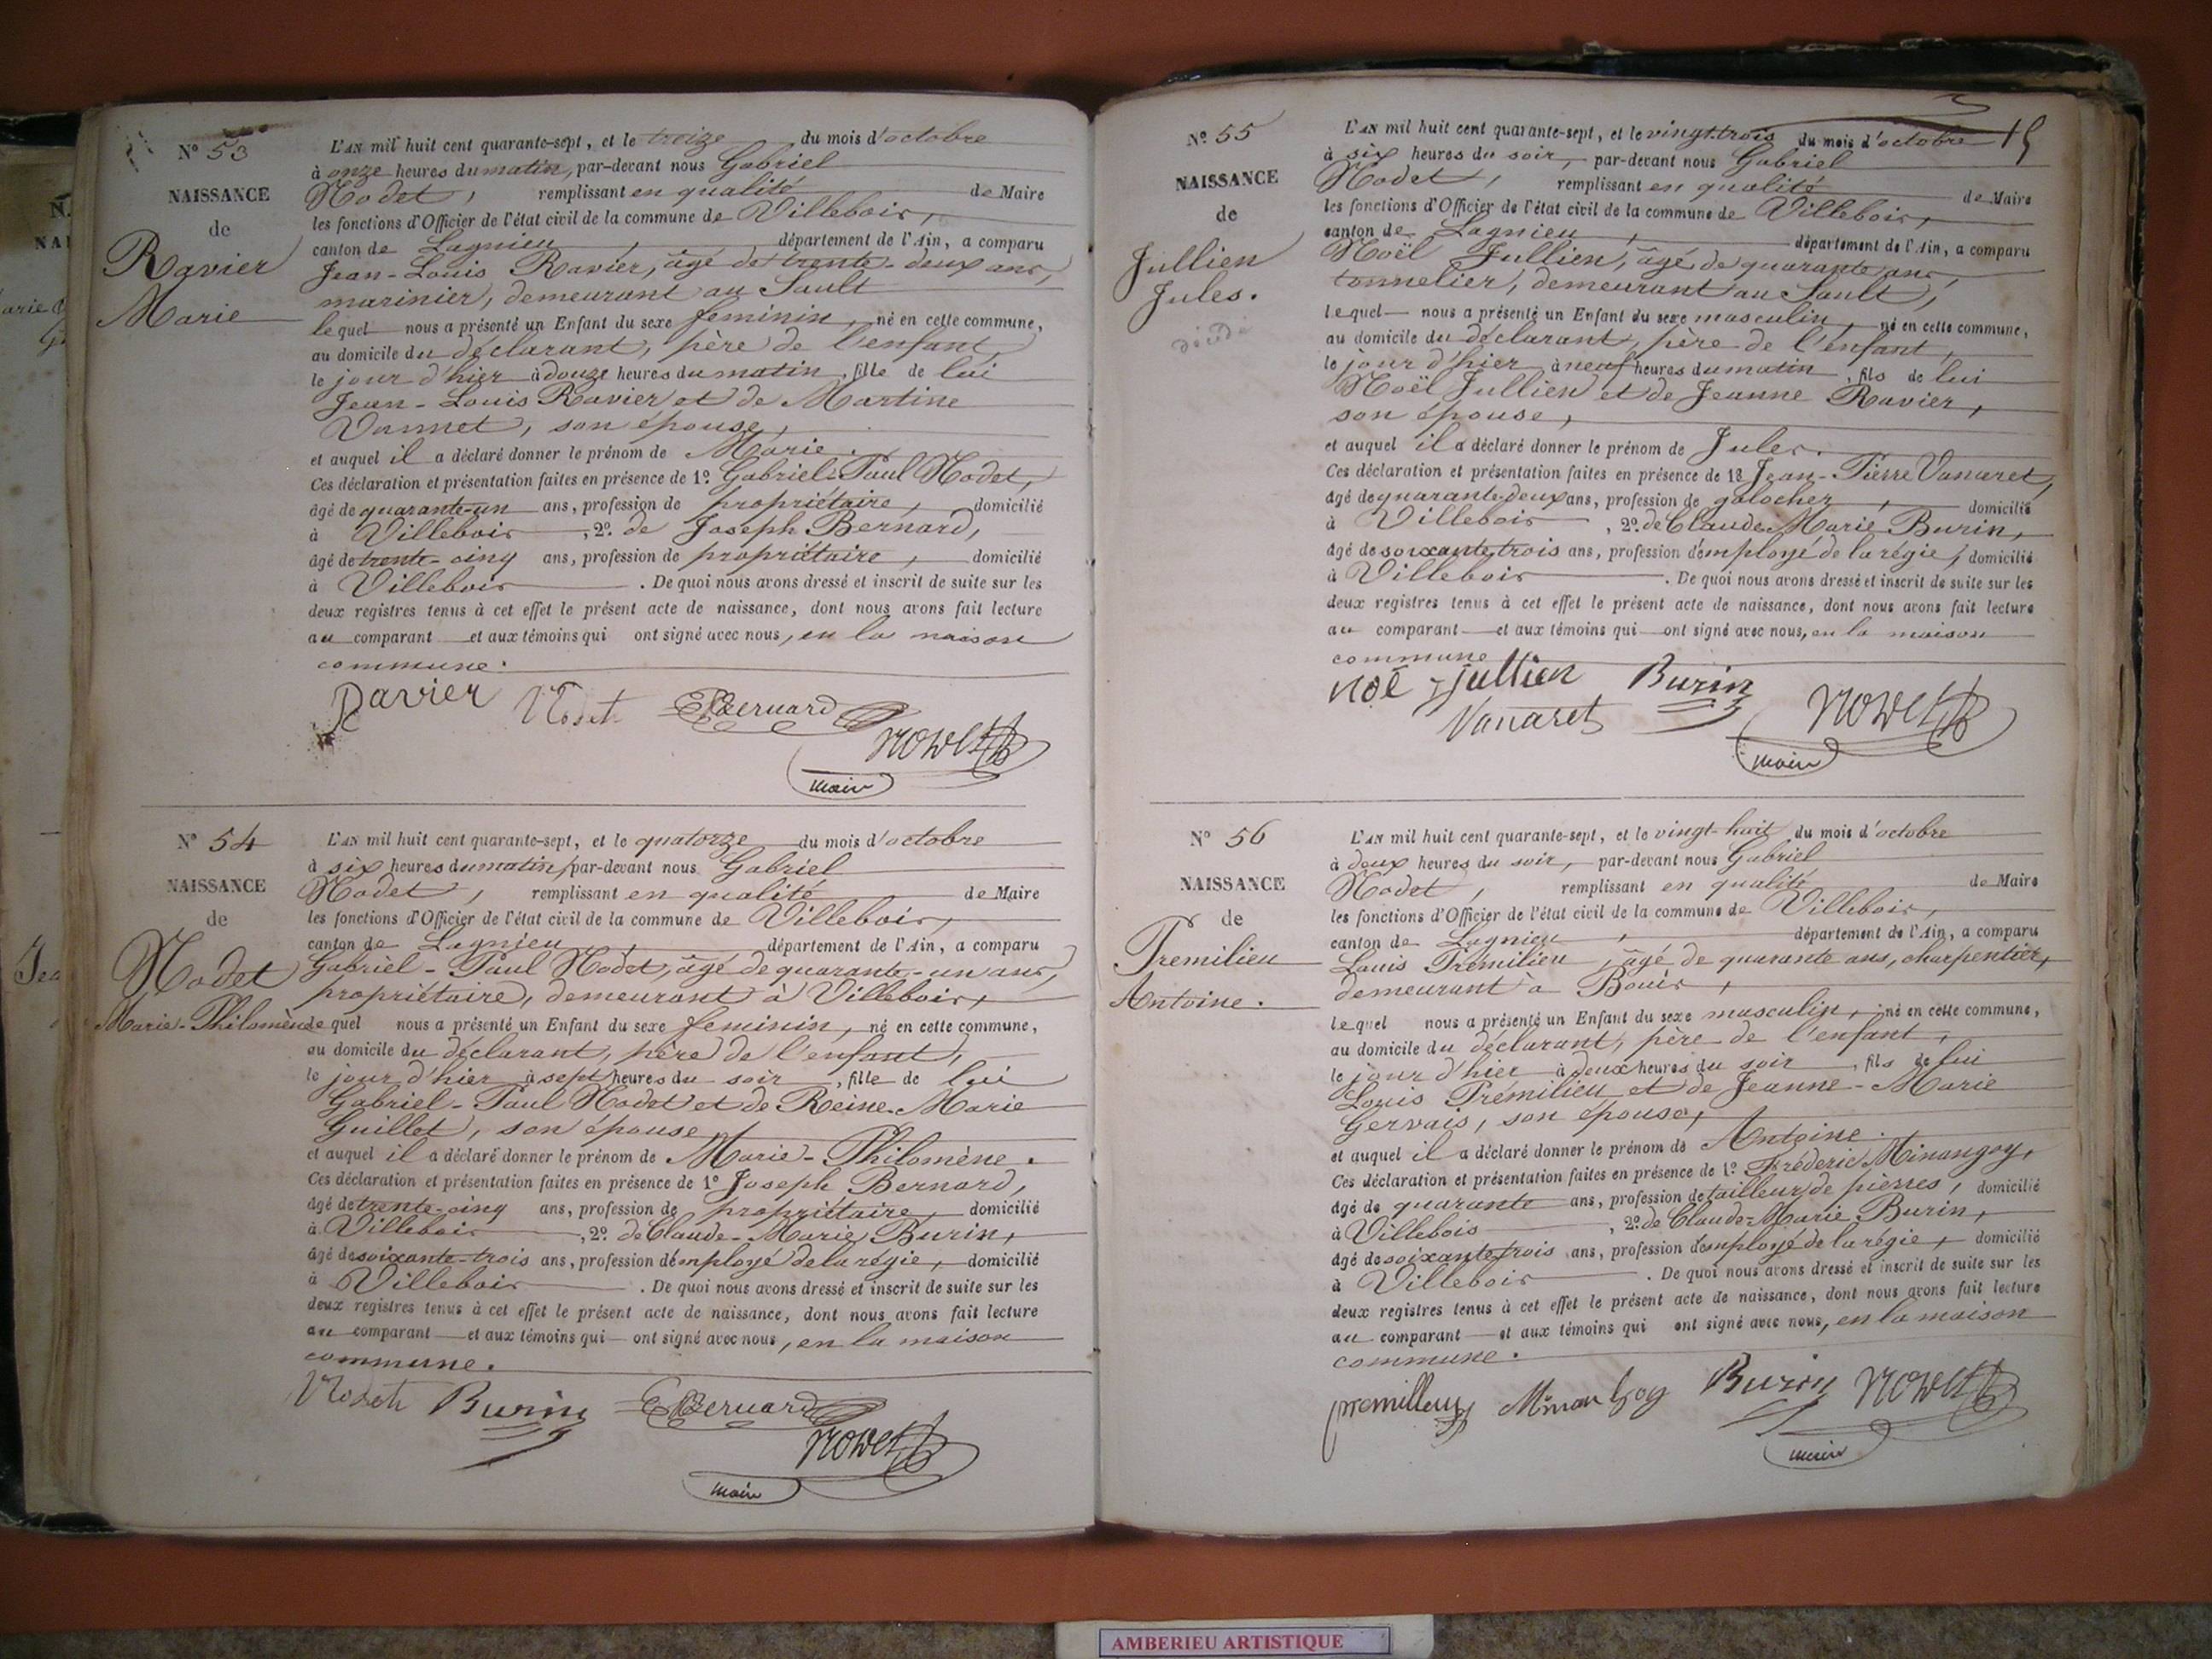 Nº 53
NAISSANCE
de
Ravier
Marie
L'AN mil huit cent quarante-sept, et le treize du mois d'octobre
à onze heures du matin, par-devant nous Gabriel
Nodet, remplissant en qualité de Maire
les fonctions d'Officier de l'état civil de la commune de Villebois,
canton de Lagnieu, département de l'Ain, a comparu
Jean-Louis Ravier, âgé de trente-deux ans,
marinier, demeurant au Sault
lequel nous a présenté un Enfant du sexe feminin, né en cette commune,
au domicile du déclarant, père de l'enfant,
le jour d'hier à douze heures du matin, fille de lui
Jean-Louis Ravier et de Martine
Vannet, son épouse,
et auquel il a déclaré donner le prénom de Marie.
Ces déclaration et présentation faites en présence de 1º Gabriel-Paul Nodet,
âgé de quarante-un ans, profession de propriétaire, domicilié
à Villebois, 2º de Joseph Bernard,
âgé de trente-cinq ans, profession de propriétaire, domicilié
à Villebois. De quoi nous avons dressé et inscrit de suite sur les
deux registres tenus à cet effet le présent acte de naissance, dont nous avons fait lecture
au comparant et aux témoins qui ont signé avec nous, en la maison
commune.
Ravier Nodet Bernard
Nodet
maire
Nº 54
NAISSANCE
de
Nodet
Marie-Philomène
L'AN mil huit cent quarante-sept, et le quatorze du mois d'octobre
à six heures du matin, par-devant nous Gabriel
Nodet, remplissant en qualité de Maire
les fonctions d'Officier de l'état civil de la commune de Villebois,
canton de Lagnieu, département de l'Ain, a comparu
Gabriel-Paul Nodet, âgé de quarante-un ans,
propriétaire, demeurant à Villebois,
lequel nous a présenté un Enfant du sexe feminin, né en cette commune,
au domicile du déclarant, père de l'enfant,
le jour d'hier à sept heures du soir, fille de lui
Gabriel-Paul Nodet et de Reine-Marie
Guillet, son épouse,
et auquel il a déclaré donner le prénom de Marie-Philomène.
Ces déclaration et présentation faites en présence de 1º Joseph Bernard,
âgé de trente-cinq ans, profession de propriétaire, domicilié
à Villebois, 2º de Claude-Marie Burin,
âgé de soixante-trois ans, profession d'employé de la régie, domicilié
à Villebois. De quoi nous avons dressé et inscrit de suite sur les
deux registres tenus à cet effet le présent acte de naissance, dont nous avons fait lecture
au comparant et aux témoins qui ont signé avec nous, en la maison
commune.
Nodet Burin Bernard
Nodet
maire
Nº 55
NAISSANCE
de
Jullien
Jules.
décédé
15
L'AN mil huit cent quarante-sept, et le vingt-trois du mois d'octobre
à six heures du soir, par-devant nous Gabriel
Nodet, remplissant en qualité de Maire
les fonctions d'Officier de l'état civil de la commune de Villebois,
canton de Lagnieu, département de l'Ain, a comparu
Noël Jullien, âgé de quarante ans,
tonnelier, demeurant au Sault,
lequel nous a présenté un Enfant du sexe masculin, né en cette commune,
au domicile du déclarant, père de l'enfant,
le jour d'hier à neuf heures du matin, fils de lui
Noël Jullien et de Jeanne Ravier,
son épouse,
et auquel il a déclaré donner le prénom de Jules.
Ces déclaration et présentation faites en présence de 1º Jean-Pierre Vanaret,
âgé de quarante-deux ans, profession de galocher, domicilié
à Villebois, 2º de Claude-Marie Burin,
âgé de soixante-trois ans, profession d'employé de la régie, domicilié
à Villebois. De quoi nous avons dressé et inscrit de suite sur les
deux registres tenus à cet effet le présent acte de naissance, dont nous avons fait lecture
au comparant et aux témoins qui ont signé avec nous, en la maison
commune
noé jullien Burin
Vanaret Nodet
maire
Nº 56
NAISSANCE
de
Tremilieu
Antoine.
L'AN mil huit cent quarante-sept, et le vingt-huit du mois d'octobre
à deux heures du soir, par-devant nous Gabriel
Nodet, remplissant en qualité de Maire
les fonctions d'Officier de l'état civil de la commune de Villebois,
canton de Lagnieu, département de l'Ain, a comparu
Louis Trémilieu, âgé de quarante ans, charpentier,
demeurant à Bouis,
lequel nous a présenté un Enfant du sexe masculin, né en cette commune,
au domicile du déclarant, père de l'enfant,
le jour d'hier à deux heures du soir, fils de lui
Louis Trémilieu et de Jeanne-Marie
Gervais, son épouse,
et auquel il a déclaré donner le prénom de Antoine.
Ces déclaration et présentation faites en présence de 1º Fréderic Minangoy,
âgé de quarante ans, profession de tailleur de pierres, domicilié
à Villebois, 2º de Claude-Marie Burin,
âgé de soixante-trois ans, profession d'employé de la régie, domicilié
à Villebois. De quoi nous avons dressé et inscrit de suite sur les
deux registres tenus à cet effet le présent acte de naissance, dont nous avons fait lecture
au comparant et aux témoins qui ont signé avec nous, en la maison
commune.
Minangoy Burin Nodet
maire
AMBERIEU ARTISTIQUE